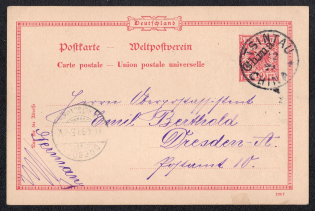 Deutschland
Postkarte — Weltpostverein
Carte postale — Union postale universelle
TSINTAU
China
CHINA
Herrn Oberpostassistent
Emil Berthold
Dresden-A.
Postamt 10.
Germany